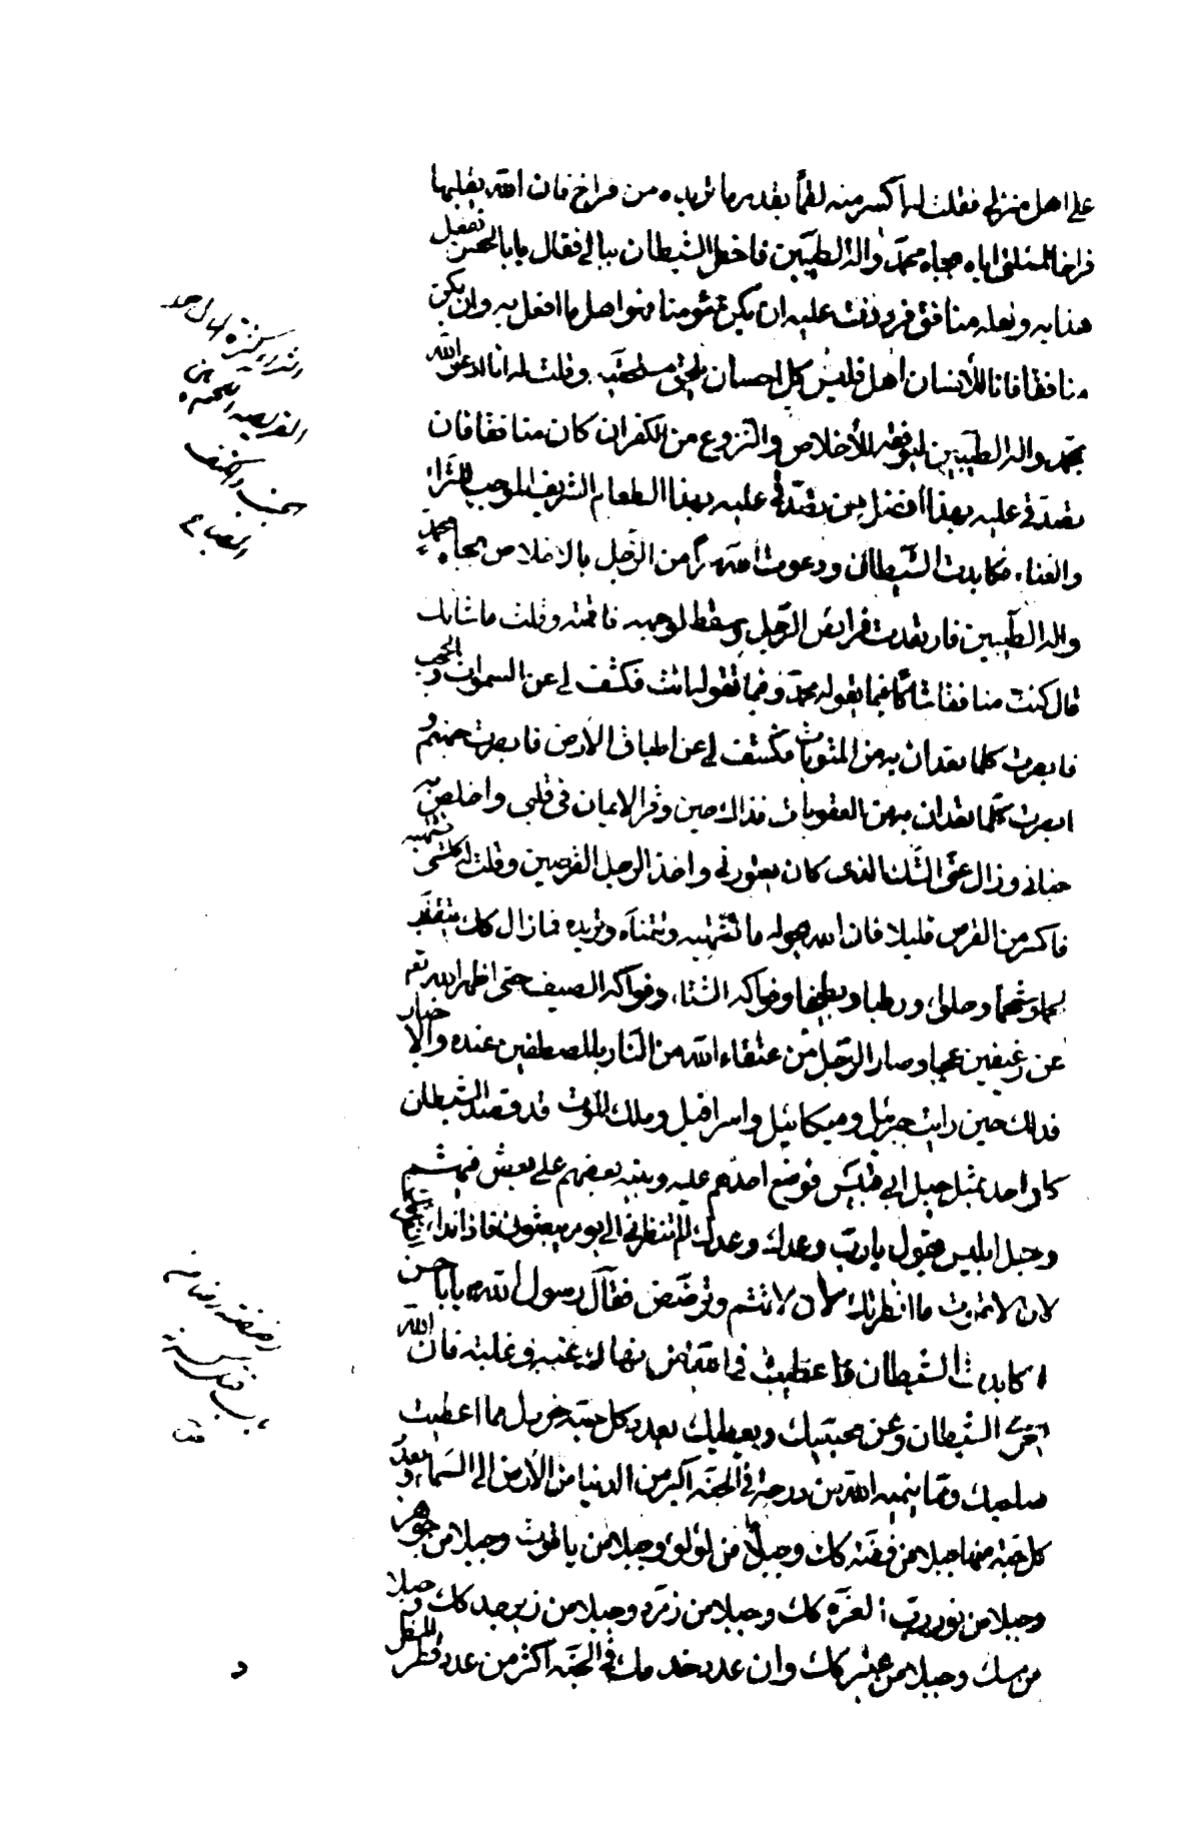 على اهل منزلى فقلت لها اكسر منه لقما بقدر ما تريده من فراخ فان الله يقلبها
فراخا لمسئلتى اياه بجاه محمد واله الطيبين فاخطر الشيطان ببالى فقال يابا الحسن تفعل
هذا به ولعله منافق فرددت عليه ان يكن مؤمنا فهو اهل ما افعل به وان يكن
منافقا فانا للاحسان اهل فليس كل احسان يلحق مستحقه وقلت له انا ادعو الله
بمحمد واله الطيبين ليوفقه للاخلاص والنزوع من الكفر ان كان منافقا فان
تصدقى عليه بهذا افضل من تصدقى عليه بهذا الطعام الشريف الموجب للثراء
والغناء فكابدت الشيطان ودعوت الله سرا من الرجل بالاخلاص بجاه محمد
واله الطيبين فارتعدت فرايص الرجل وسقط لوجهه فاقمته وقلت ما شانك
قال كنت منافقا شاكا فيما يقوله محمد وفيما تقوله انت فكشف لى عن السموات والحجب
فابصرت كلما تعدان به من المثوبات وكشف لى عن اطباق الارض فابصرت جهنم و
ابصرت كلما تعدان به من العقوبات فذاك حين وقر الايمان فى قلبى واخلص به
جنانى وزال عنى الشك الذى كان يعتورنى واخذ الرجل القرصين وقلت له كل شئ تشتهيه
فاكسر من القرص قليلا فان الله يحوله ما تشتهيه وتتمناه وتريده فمازال كك ينقلب
لحما وشحما وحلواء ورطبا وبطيخا وفواكه الشتاء وفواكه الصيف حتى اظهر الله تعم
من رغيفين عجبا وصار الرجل من عتقاء الله من النار والمصطفين عنده والاخيار
فذلك حين رايت جبرئيل وميكائيل واسرافيل وملك الموت قد قصدوا الشيطان
كل واحد بمثل جبل ابى قبيس فوضع احدهم عليه ويبنيه بعضهم على بعض فيهشم
وجعل ابليس يقول يا رب وعدك وعدك الم تنظرنى الى يوم يبعثون فاذا نداء
لان لا تموت ما انظرتك لان لا تهشم وترضض فقال رسول الله يابا حسن
كابدت الشيطان فاعطيت فى الله من نهاك عنه وغلبته فان الله
يخزى الشيطان وعن محبيك ويعطيك بعدد كل حبة خردل مما اعطيت
صاحبك ومما ينميه الله من درجة فى الجنة اكبر من الدنيا من الارض الى السماء وبعدد
كل حبة منها جبلا من فضة كك وجبلا من لؤلؤ وجبلا من ياقوت وجبلا من جوهر
وجبلا من نور رب العزة كك وجبلا من زمرد وجبلا من زبرجد كك وجبلا
من مسك وجبلا من عنبر كك وان عدد خدمك فى الجنة اكثر من عدد قطر المطر
الفريصة اللحمة بين
الجنب والكتف